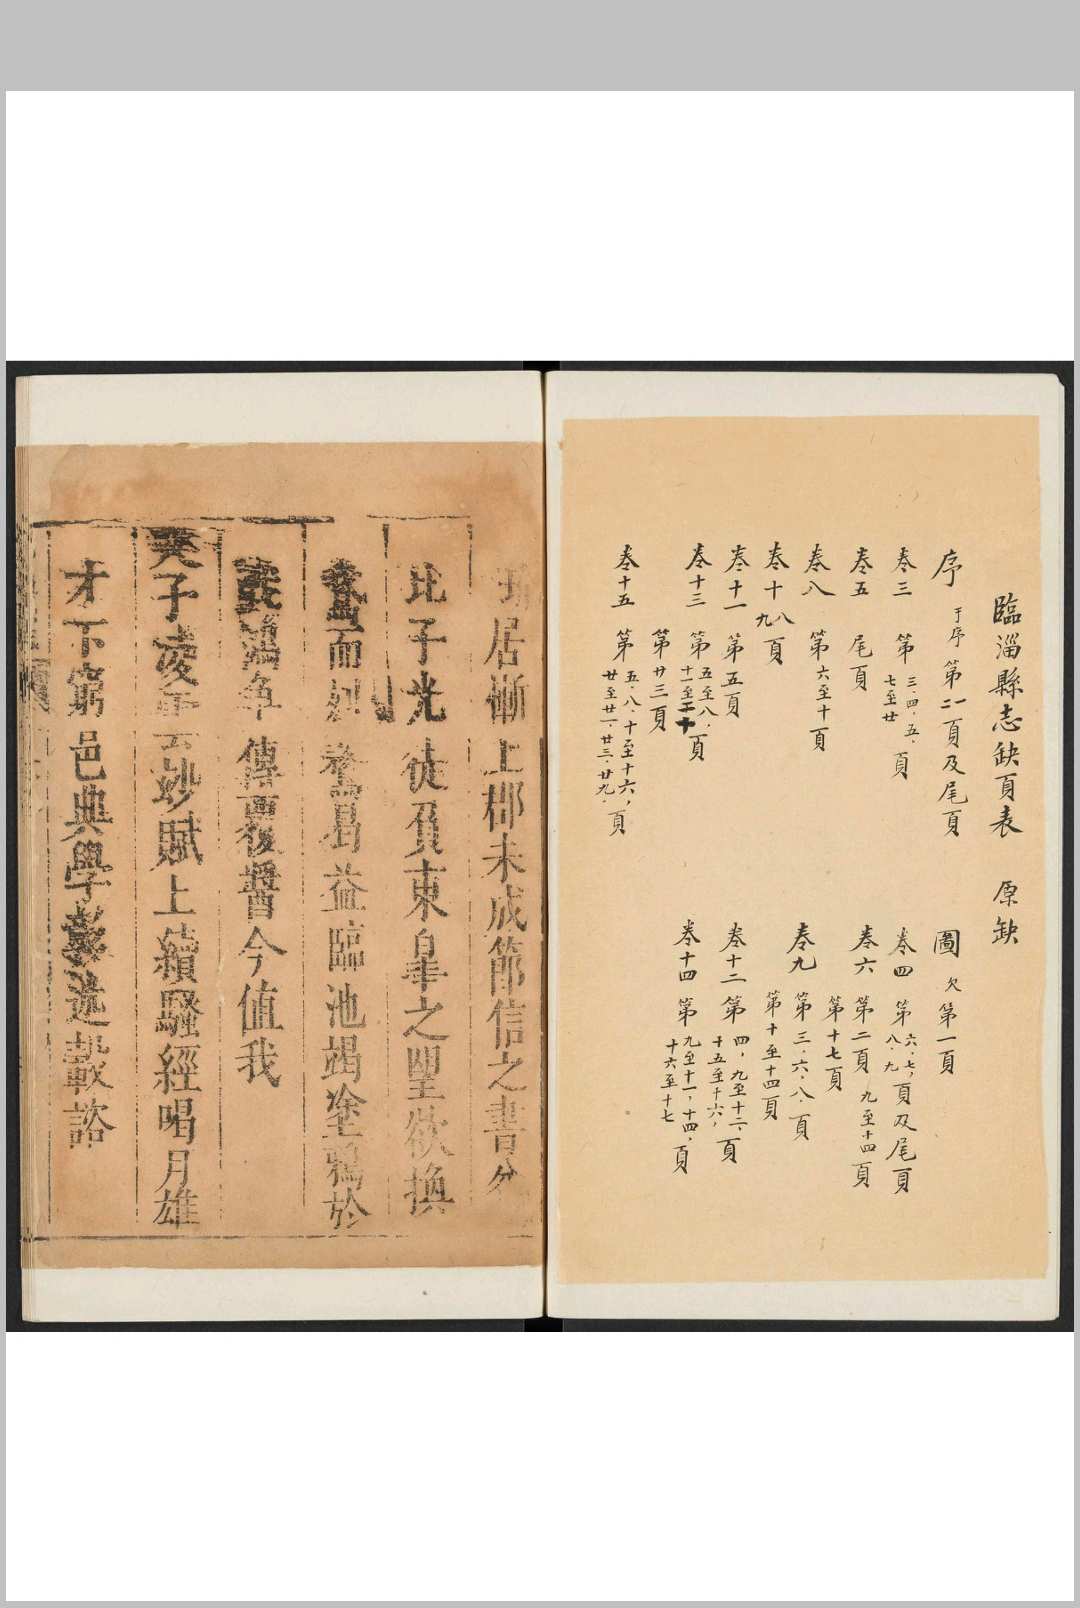 臨淄縣志缺頁表 原缺
序 于序 第二一頁及尾頁
圖 欠第一頁
卷三 第三.四.五.七至廿頁
卷四 第六.七,八.九頁及尾頁
卷五 尾頁
卷六 第二頁 九至十四頁
第十七頁
卷八 第六至十頁
卷九 第三.六.八.頁
卷十 八九頁
第十至十四頁
卷十一 第五頁
卷十二 第四,九至十二、十五至十六,頁
卷十三 第五至八.十一至二十頁
卷十四 第九至十一,十四,十六至十七頁
第廿三頁
卷十五 第五.八.十至十六,廿至廿一.廿三.廿九.頁
居慚上郡未成節信之書分
比子光徒負東臯之望欲換
而 曷益臨池竭塗鴉於
傳覆醬今值我
子凌雲妙賦上續騷經喝月雄
才下窮邑典學 遊載諮